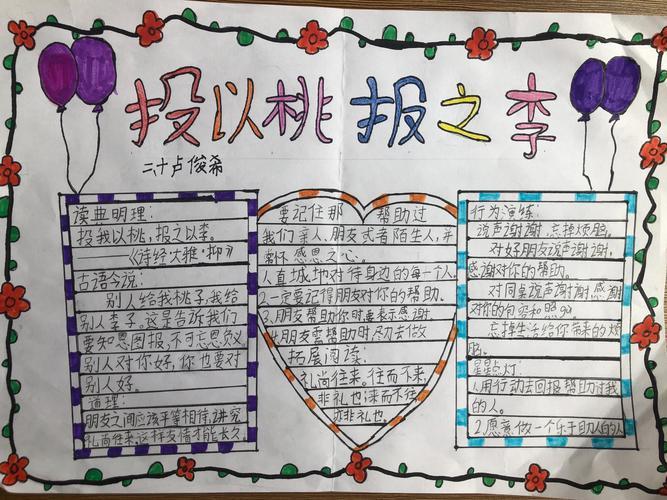 投以桃报之李
二十卢俊希
读典明理:
投我以桃,报之以李。
——《诗经·大雅·抑》
古语今说:
别人给我桃子,我给
别人李子。这是告诉我们
要知恩图报,不可忘恩负义
别人对你好,你也要对
别人好。
道理:
朋友之间应该平等相待,讲究
礼尚往来,这样友情才能长久。
要记住那 帮助过
我们亲人、朋友或者陌生人,并
怀感恩之心。
人真城地对待身边的每一个人
2.一定要记得朋友对你的帮助。
3.朋友帮助你时要表示感谢。
4.朋友需帮助时尽力去做
拓展阅读:
礼尚往来。往而不来,
非礼也;来而不往,
亦非礼也。
行为演练:
说声谢谢,忘掉烦恼。
对好朋友说声谢谢,
感谢对你的帮助。
对同桌说声谢谢,感谢
对你的包容和照
忘掉生活给你带来的烦
恼。
星星点灯:
1.用行动去回报帮助过我
的人。
2.愿意做一个乐于助人的人